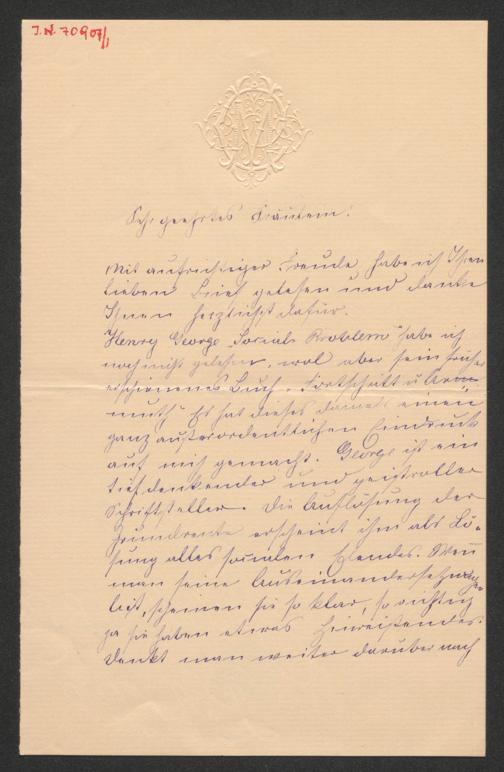 J.N. 70907/1
Sehr geehrtes Fräulein!
Mit aufrichtiger Freude habe ich Ihren
lieben Brief gelesen und danke
Ihnen herzlichst dafür.
Henry George „Social Problems" habe ich
noch nicht gelesen, wol aber sein früher
erschienenes Buch „Fortschritt u Ar-
muth". Es hat dieses damals einen
ganz außerordentlichen Eindruck
auf mich gemacht. George ist ein
tief denkender und geistvoller
Schriftsteller. Die Auflösung der
Grundrente erscheint ihm als Lö-
sung alles socialen Elendes. Wenn
man seine Auseinandersetzungen
liest, scheinen sie so klar, so richtig
ja sie haben etwas Hinreißendes.
Denkt man weiter darüber nach